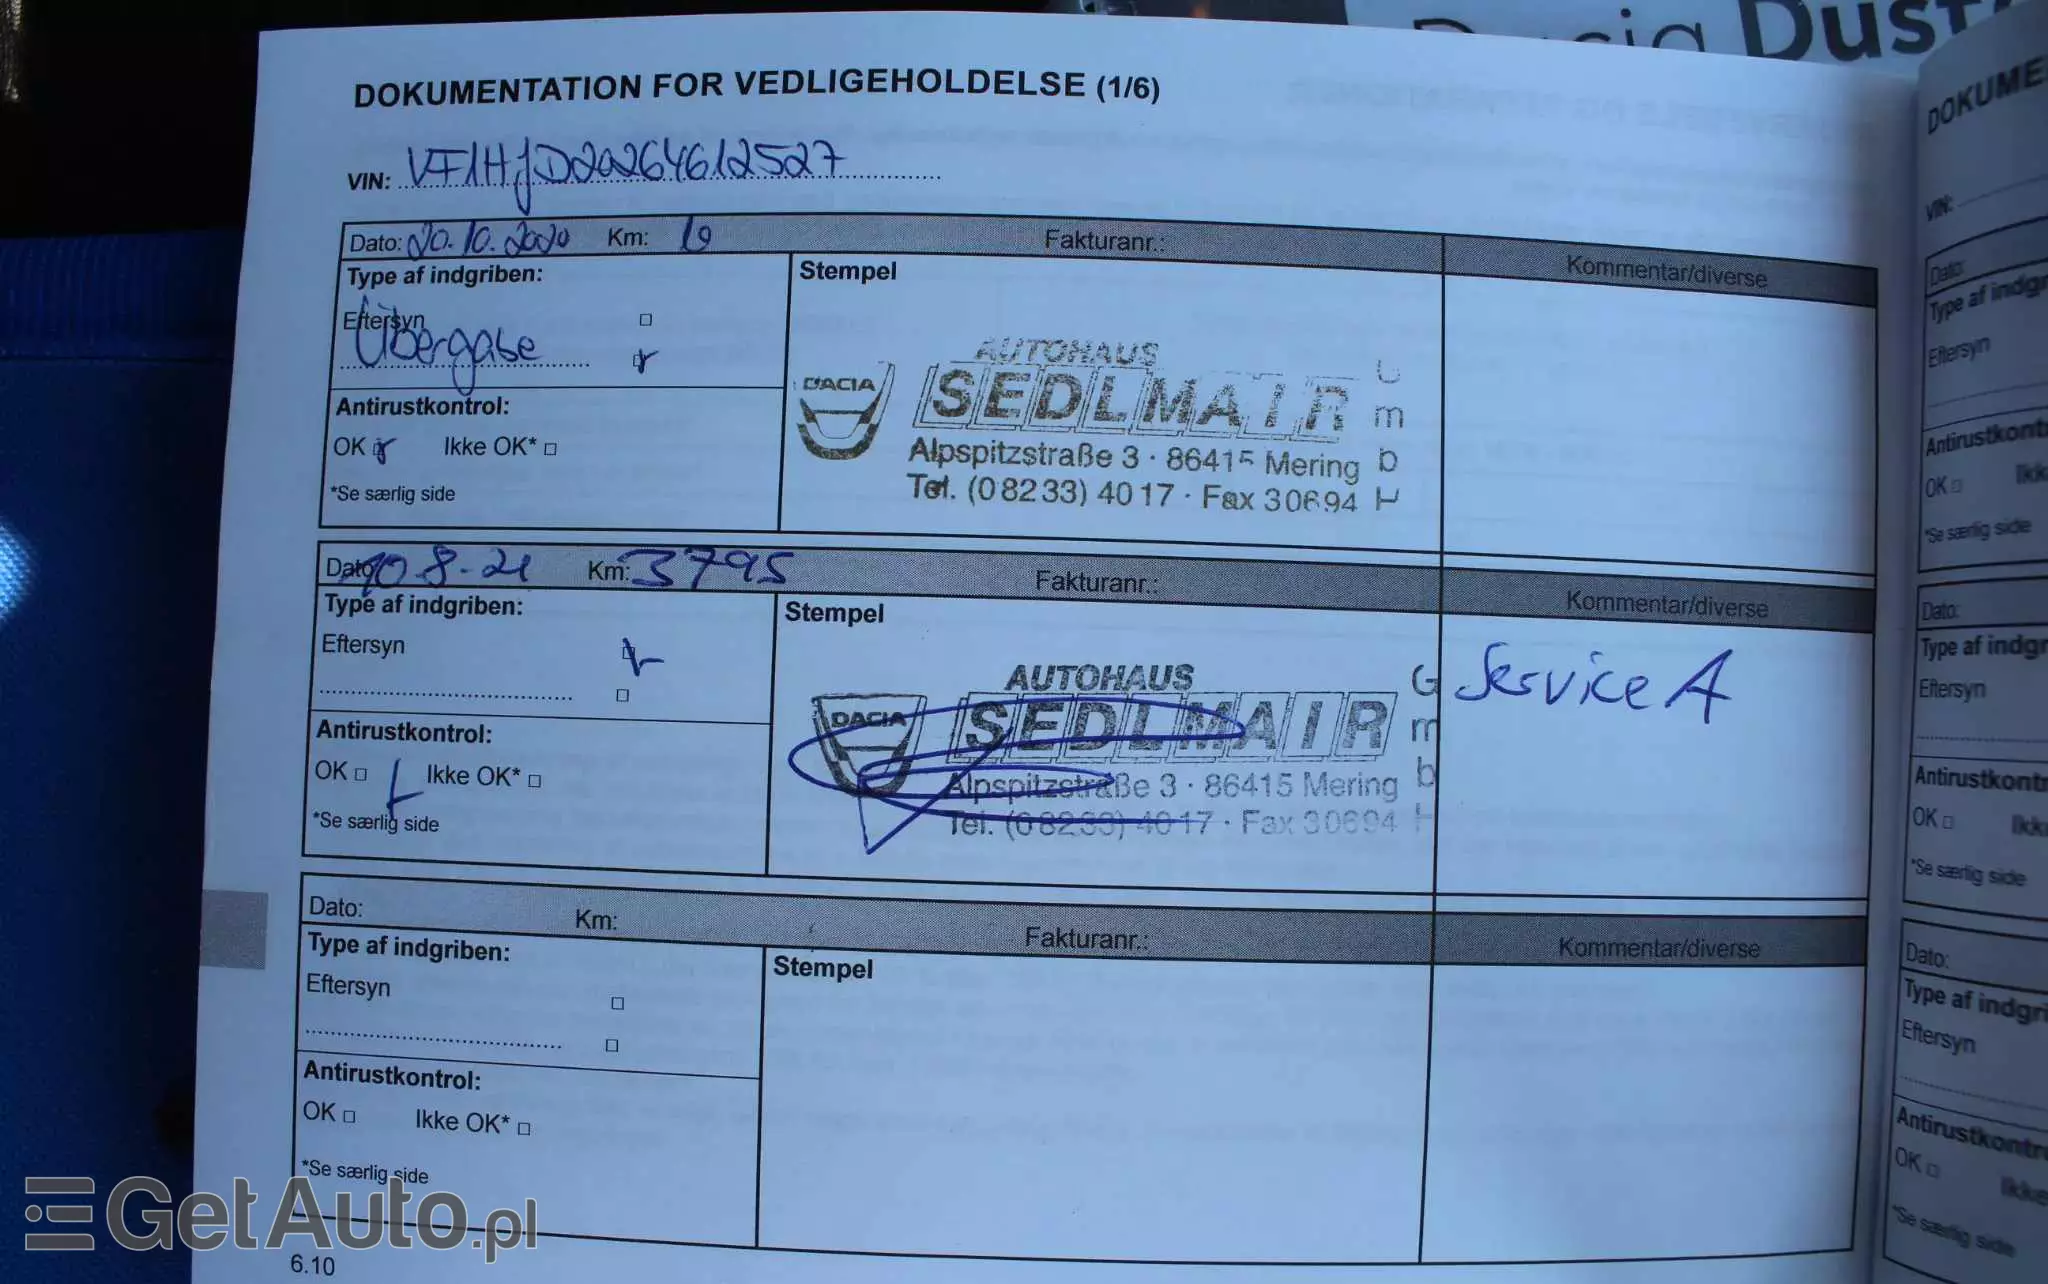 Dacia Dust
DOKUMENTATION FOR VEDLIGEHOLDELSE (1/6)
VIN: VF1HJD20264612527
Dato: 20.10.2020 Km: 10 Fakturanr.: Kommentar/diverse
Type af indgriben:
Stempel
Eftersyn
Übergabe
Antirustkontrol:
OK Ikke OK*
*Se særlig side
AUTOHAUS
DACIA SEDLMAIR GmbH
Alpspitzstraße 3 · 86415 Mering
Tel. (0 82 33) 40 17 · Fax 30694
Dato: 10.8.21 Km: 3795 Fakturanr.: Kommentar/diverse
Type af indgriben:
Stempel
Eftersyn
Antirustkontrol:
OK Ikke OK*
*Se særlig side
AUTOHAUS
DACIA SEDLMAIR GmbH
Alpspitzstraße 3 · 86415 Mering
Tel. (0 82 33) 40 17 · Fax 30694
Service A
Dato: Km: Fakturanr.: Kommentar/diverse
Type af indgriben:
Stempel
Eftersyn
Antirustkontrol:
OK Ikke OK*
*Se særlig side
6.10
DOKUME
VIN:
Dato:
Type af indgr
Eftersyn
Antirustkont
OK Ikk
*Se særlig side
Dato:
Type af indgr
Eftersyn
Antirustkont
OK Ikk
*Se særlig side
Dato:
Type af indgri
Eftersyn
Antirustkontr
OK Ikke
*Se særlig side
GetAuto.pl